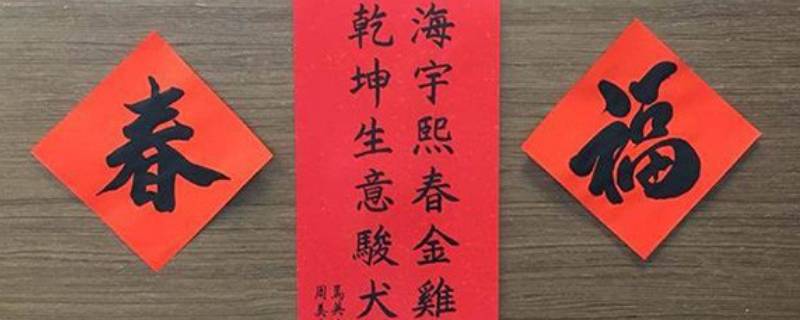 春
海宇熙春金雞
乾坤生意駿犬
馬英
周美
福